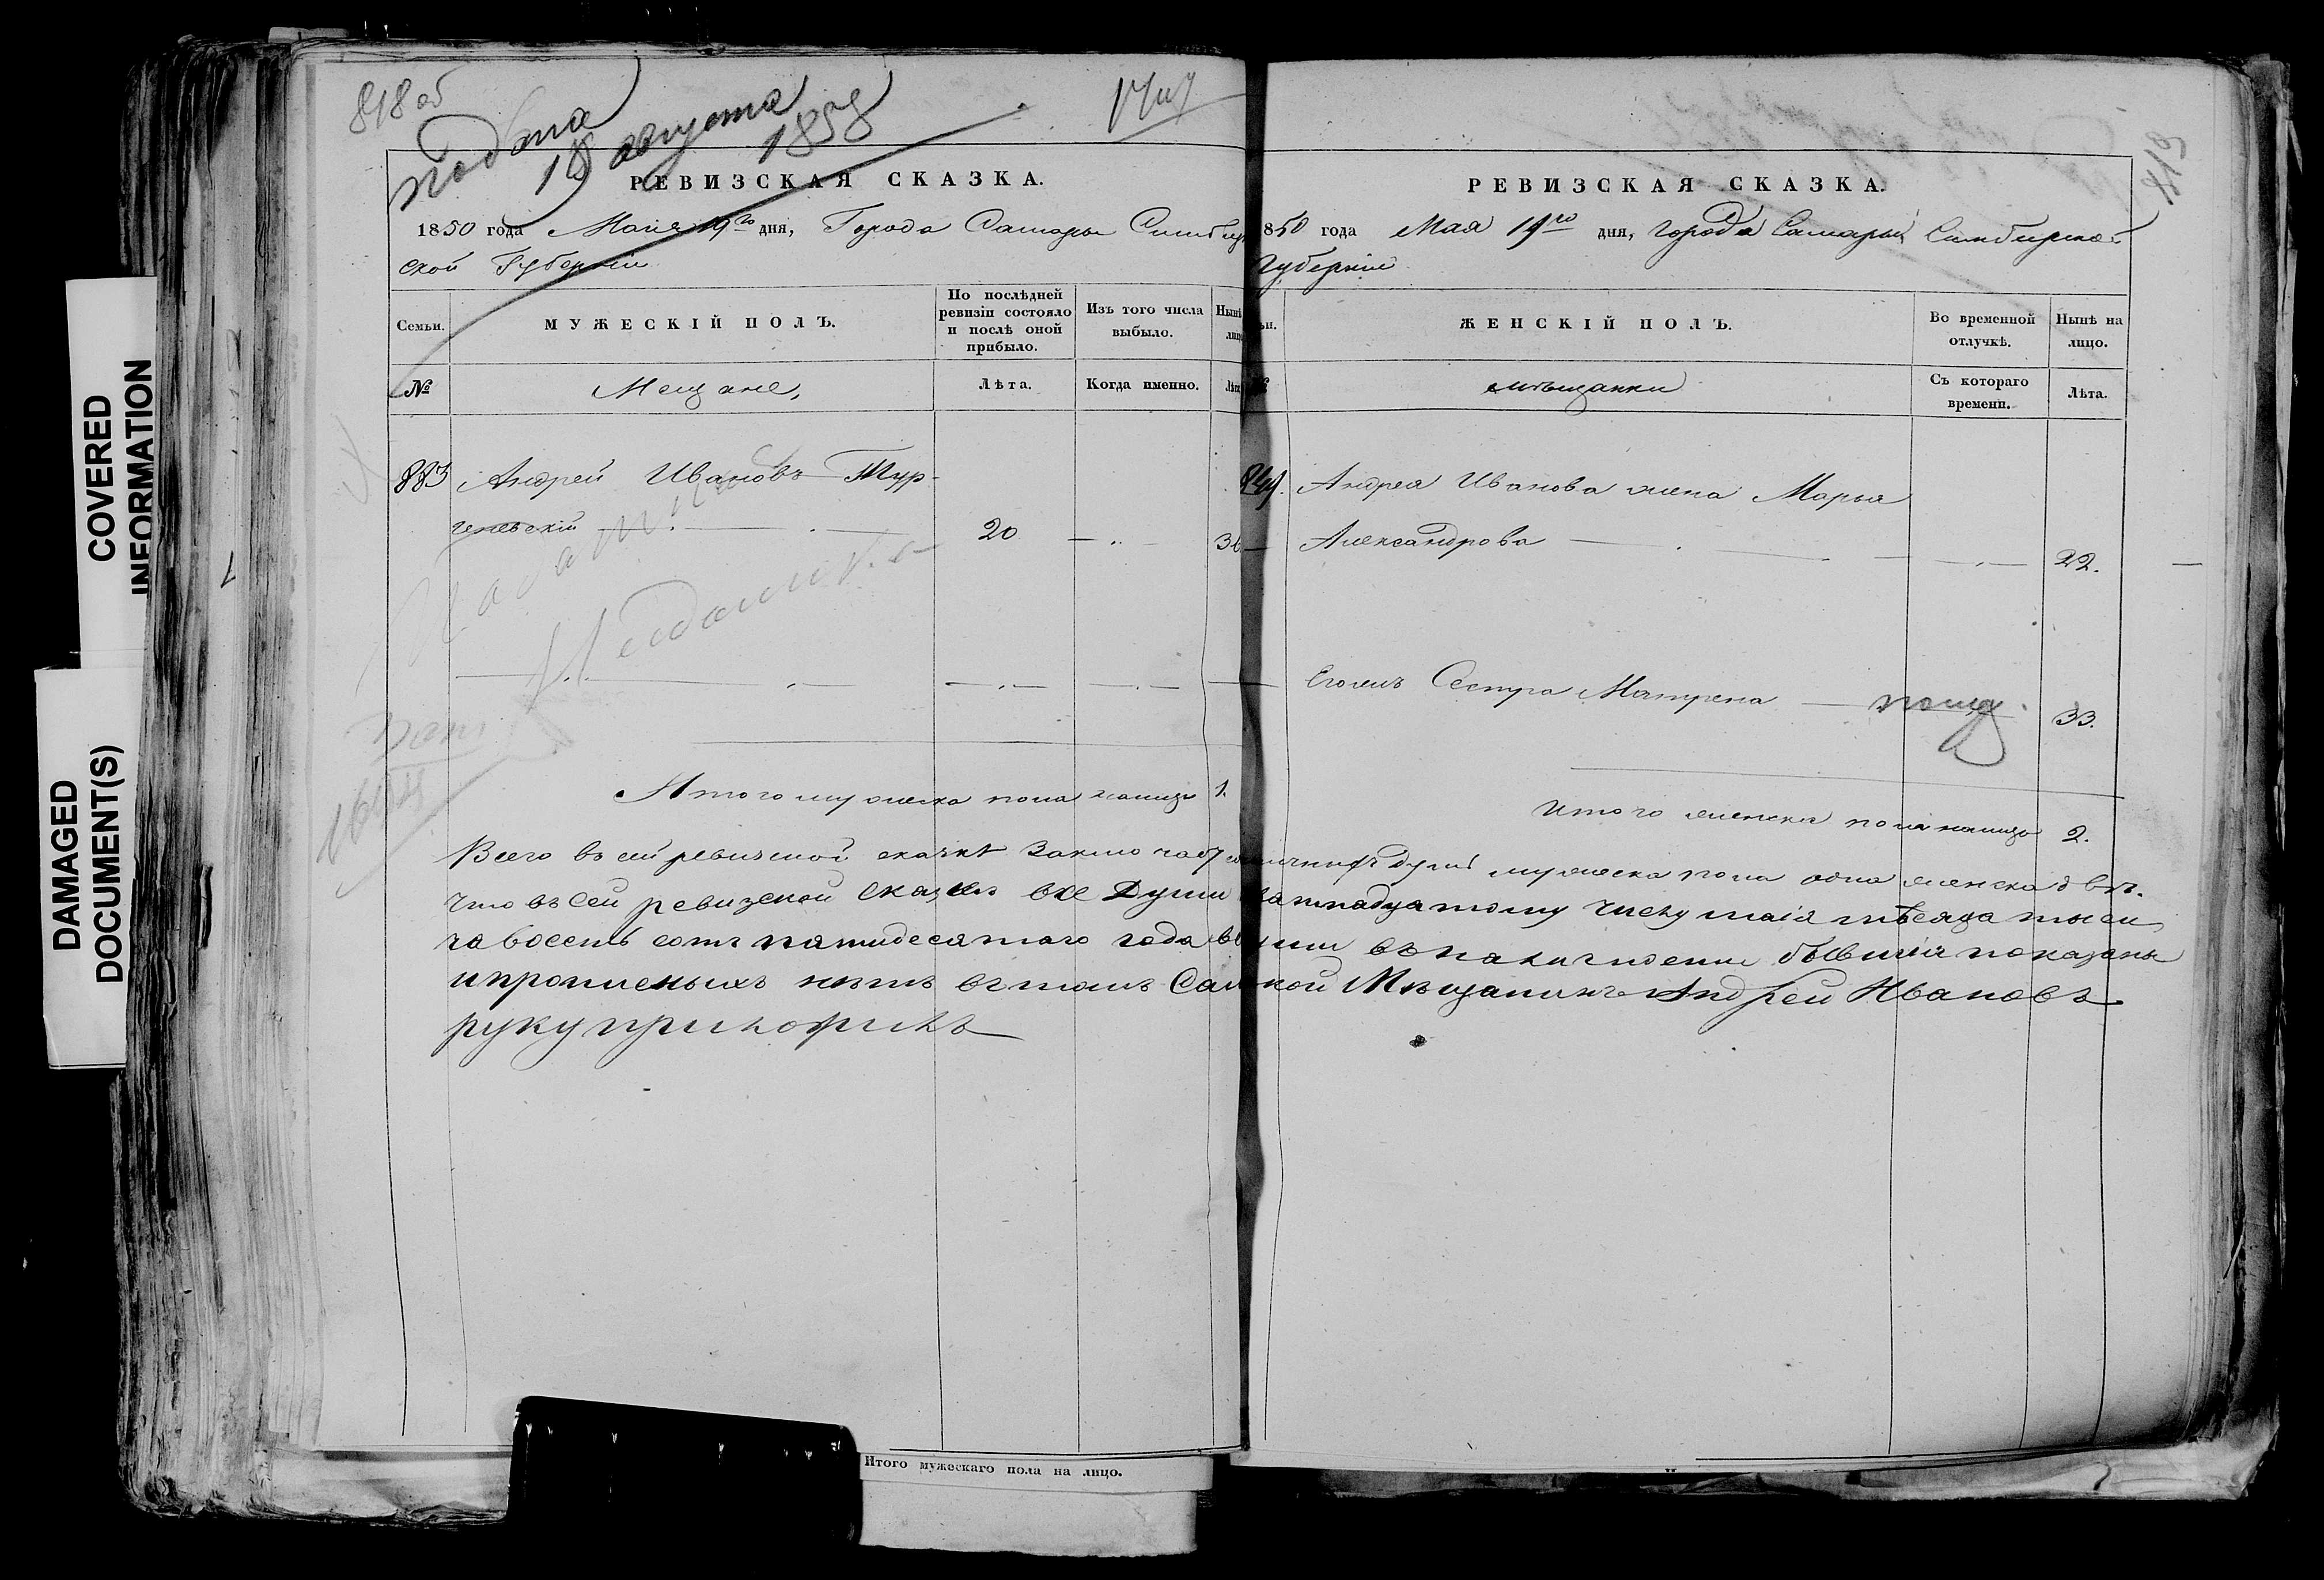 COVERED
INFORMATION
DAMAGED
DOCUMENT(S)
818 об
подана
18 августа
1858
РЕВИЗСКАЯ СКАЗКА.
1850 года Маия 19го дня, Города Самары Симбир
ской Губернии
Семьи.
МУЖЕСКІЙ ПОЛЪ.
По послѣдней
ревизіи состояло
и послѣ оной
прибыло.
Изъ того числа
выбыло.
Нынѣ
лицо
№
Мещане,
Лѣта.
Когда именно.
Лѣта
883 Андрей Ивановъ Тур-
геневскій
20
36
Итого мужеска пола налицо 1.
819
РЕВИЗСКАЯ СКАЗКА.
850 года Мая 19го дня, города Самары Симбирской
губернии
ЖЕНСКІЙ ПОЛЪ.
Во временной
отлучкѣ.
Нынѣ на
лицо.
мѣщанки
Съ котораго
времени.
Лѣта.
Андрея Иванова жена Марья
Александрова
22.
Его жъ Сестра Матрена
33.
Итого женска пола налицо 2.
Всего въ сей ревизской сказкѣ душъ мужеска пола одна женска двѣ.
Что въ сей ревизской сказке все Души числу маія мѣсяца тыся
ча восемь сотъ пятидесятаго года бывшия показаны
и прописныхъ нетъ въ томъ Мѣщанинъ Андрей Ивановъ
руку приложилъ
Итого мужескаго пола на лицо.